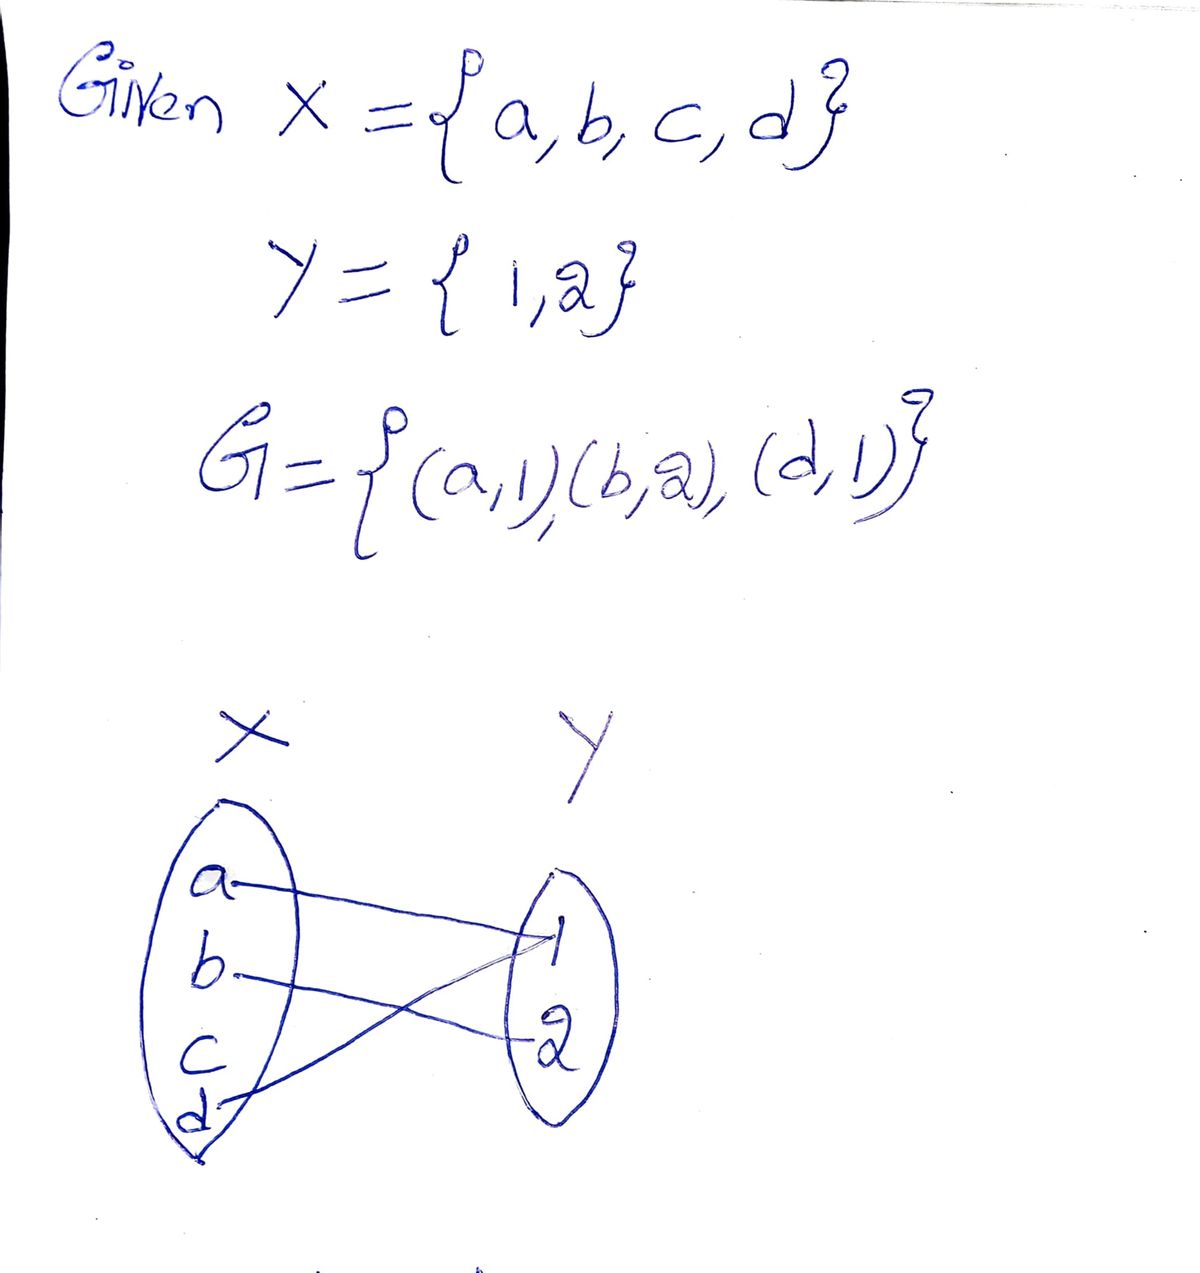 Given X = { a, b, c, d}
Y = { 1, 2}
G = { (a, 1), (b, 2), (d, 1)}
X Y
a
1
b
2
c
d